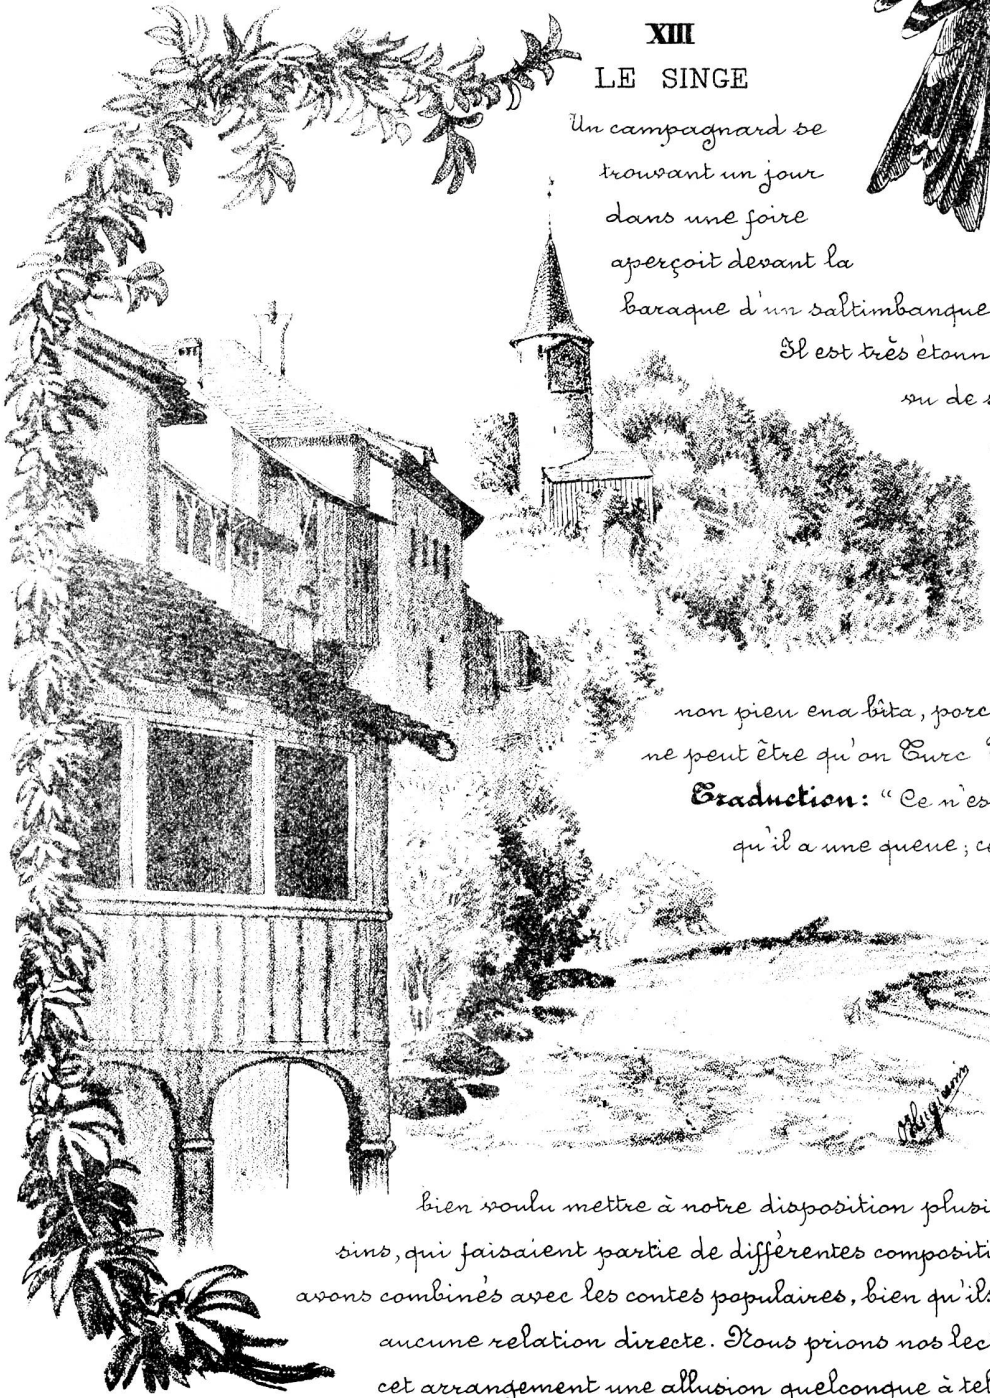 XIII
LE SINGE
Un campagnard se
trouvant un jour
dans une foire
aperçoit devant la
baraque d'un saltimbanque
Il est très étonn
vu de s
non pieu ena bîta, porc
ne peut être qu'on Turc
Traduction: "Ce n'es
qu'il a une queue; ce
bien voulu mettre à notre disposition plusi
sins, qui faisaient partie de différentes compositi
avons combinés avec les contes populaires, bien qu'ils
aucune relation directe. Nous prions nos lec
cet arrangement une allusion quelconque à tel